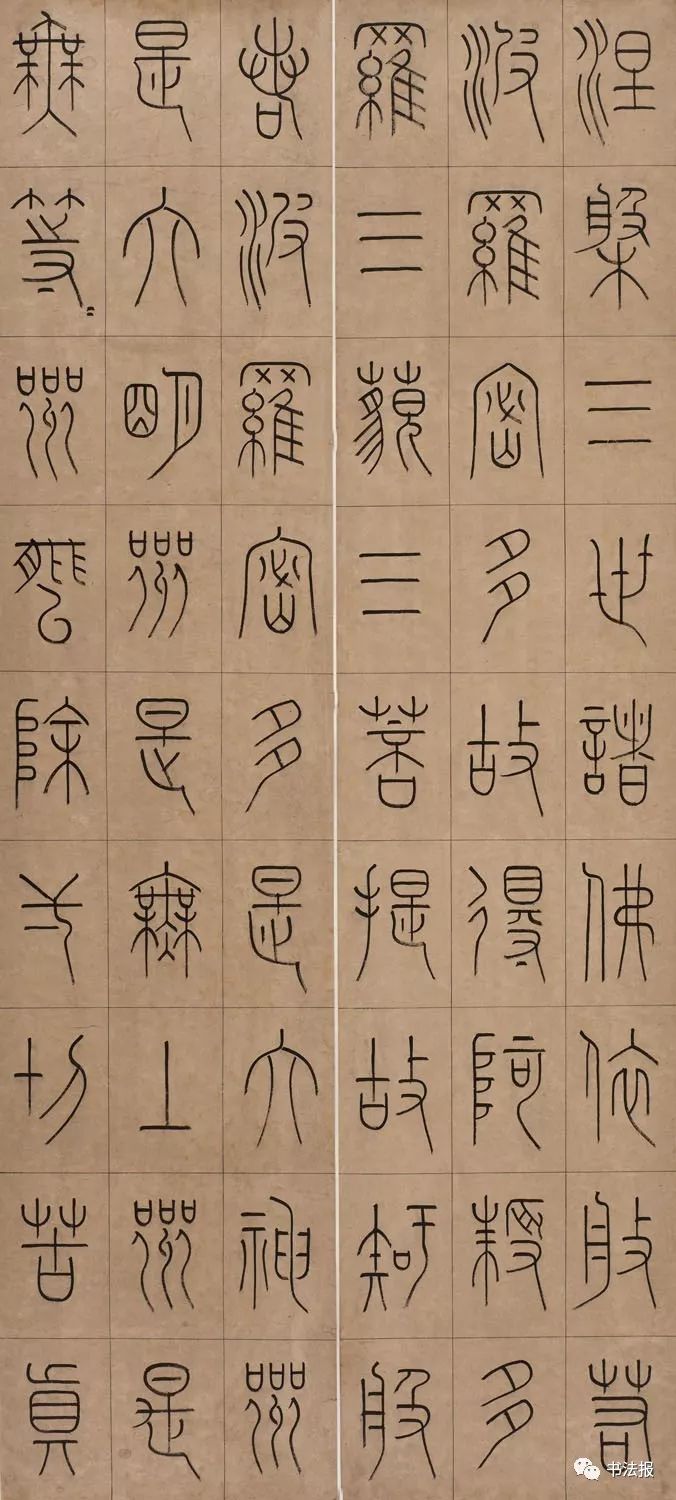 涅槃三世諸佛依般若
波羅密多故得阿耨多
羅三藐三菩提故知般
若波羅密多是大神咒
是大明咒是無上咒是
無等〻咒能除弌切苦真
书法报